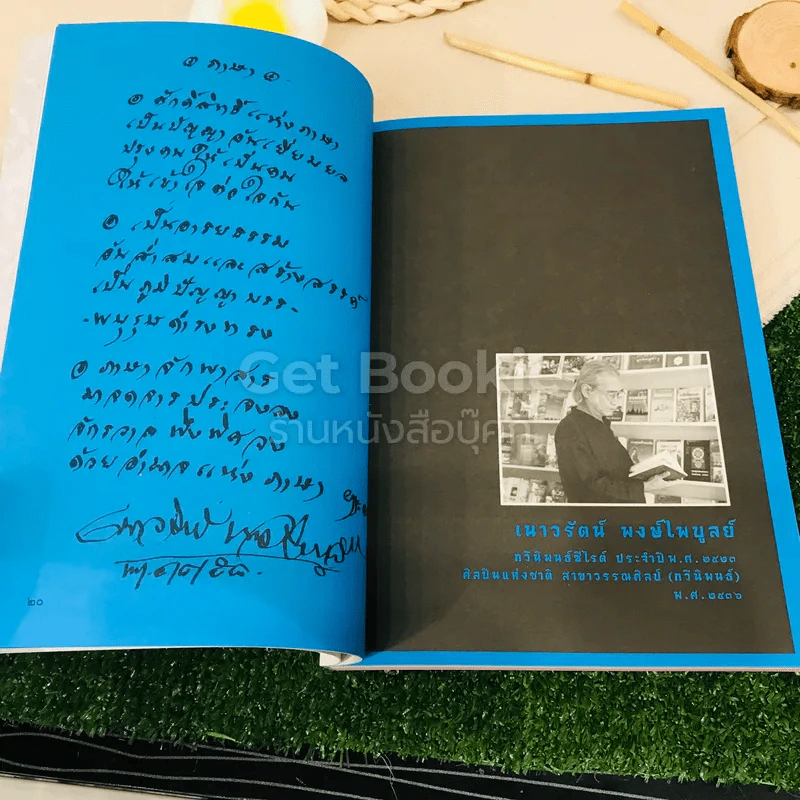 ๏ ภาษา ๏
๏ ศักดิ์สิทธิ์แห่งภาษา
เป็นปัญญาอันเยี่ยมยล
ปรุงคนให้เป็นคน
ให้เข้าใจต่อใจกัน
๏ เป็นอารยธรรม
อันสั่งสมและสร้างสรรค์
เป็นภูมิปัญญาบรร-
-พบุรุษดำรงทรง
๏ ภาษาจักพาสาร
จักรวาลพึงพิศวง
ด้วยอำนาจแห่งภาษา
๒๐
เนาวรัตน์ พงษ์ไพบูลย์
กวีนิพนธ์ซีไรต์ ประจำปีพ.ศ. ๒๕๒๓
ศิลปินแห่งชาติ สาขาวรรณศิลป์ (กวีนิพนธ์)
พ.ศ. ๒๕๓๖
Get Booki
ร้านหนังสือบุ๊ค